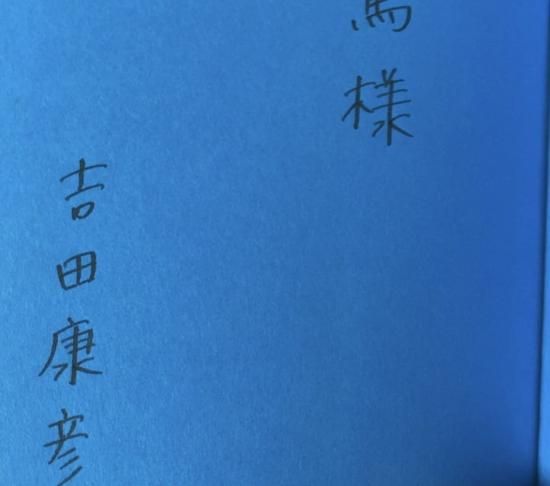 馬様
吉田康彦